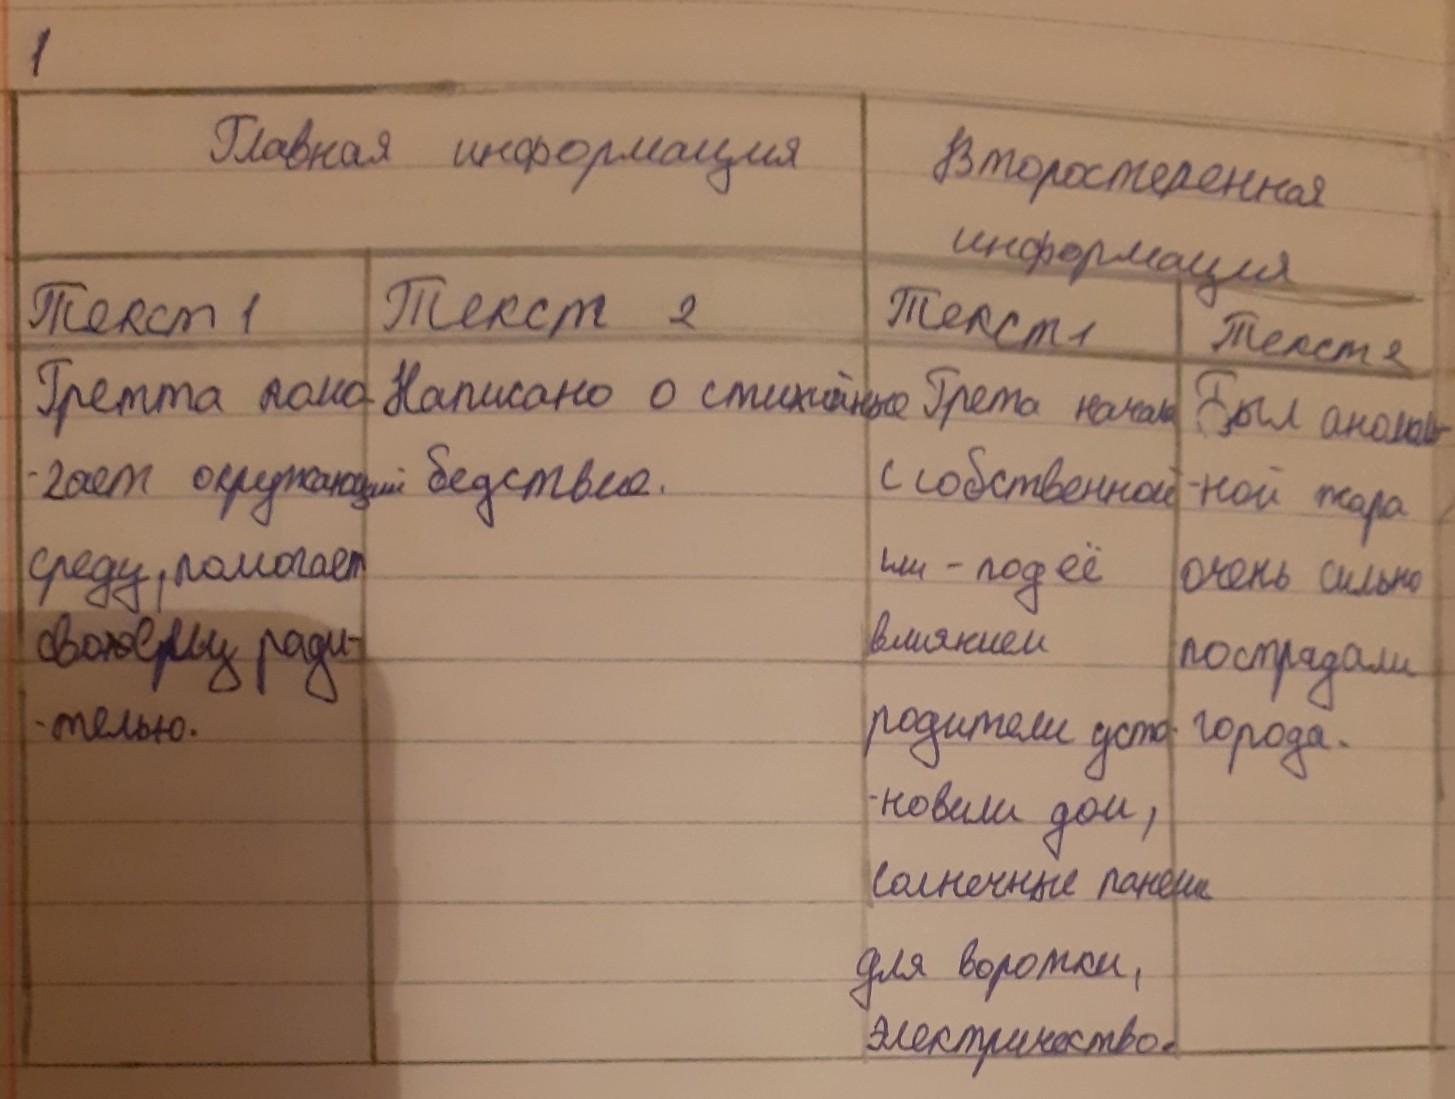 1
Главная информация
Второстепенная
информация
Текст 1
Гретта помо-
-гает окружающий
среду, помогает
роди-
-телью.
Текст 2
Написано о стихийные
бедствие.
Текст 1
Грета начала
с собственной
или - под её
влиянием
родители уста-
-новили дом,
солнечные панели
для воротки,
электричество.
Текст 2
Был аномаль-
-ной жара
очень сильно
пострадали
города.